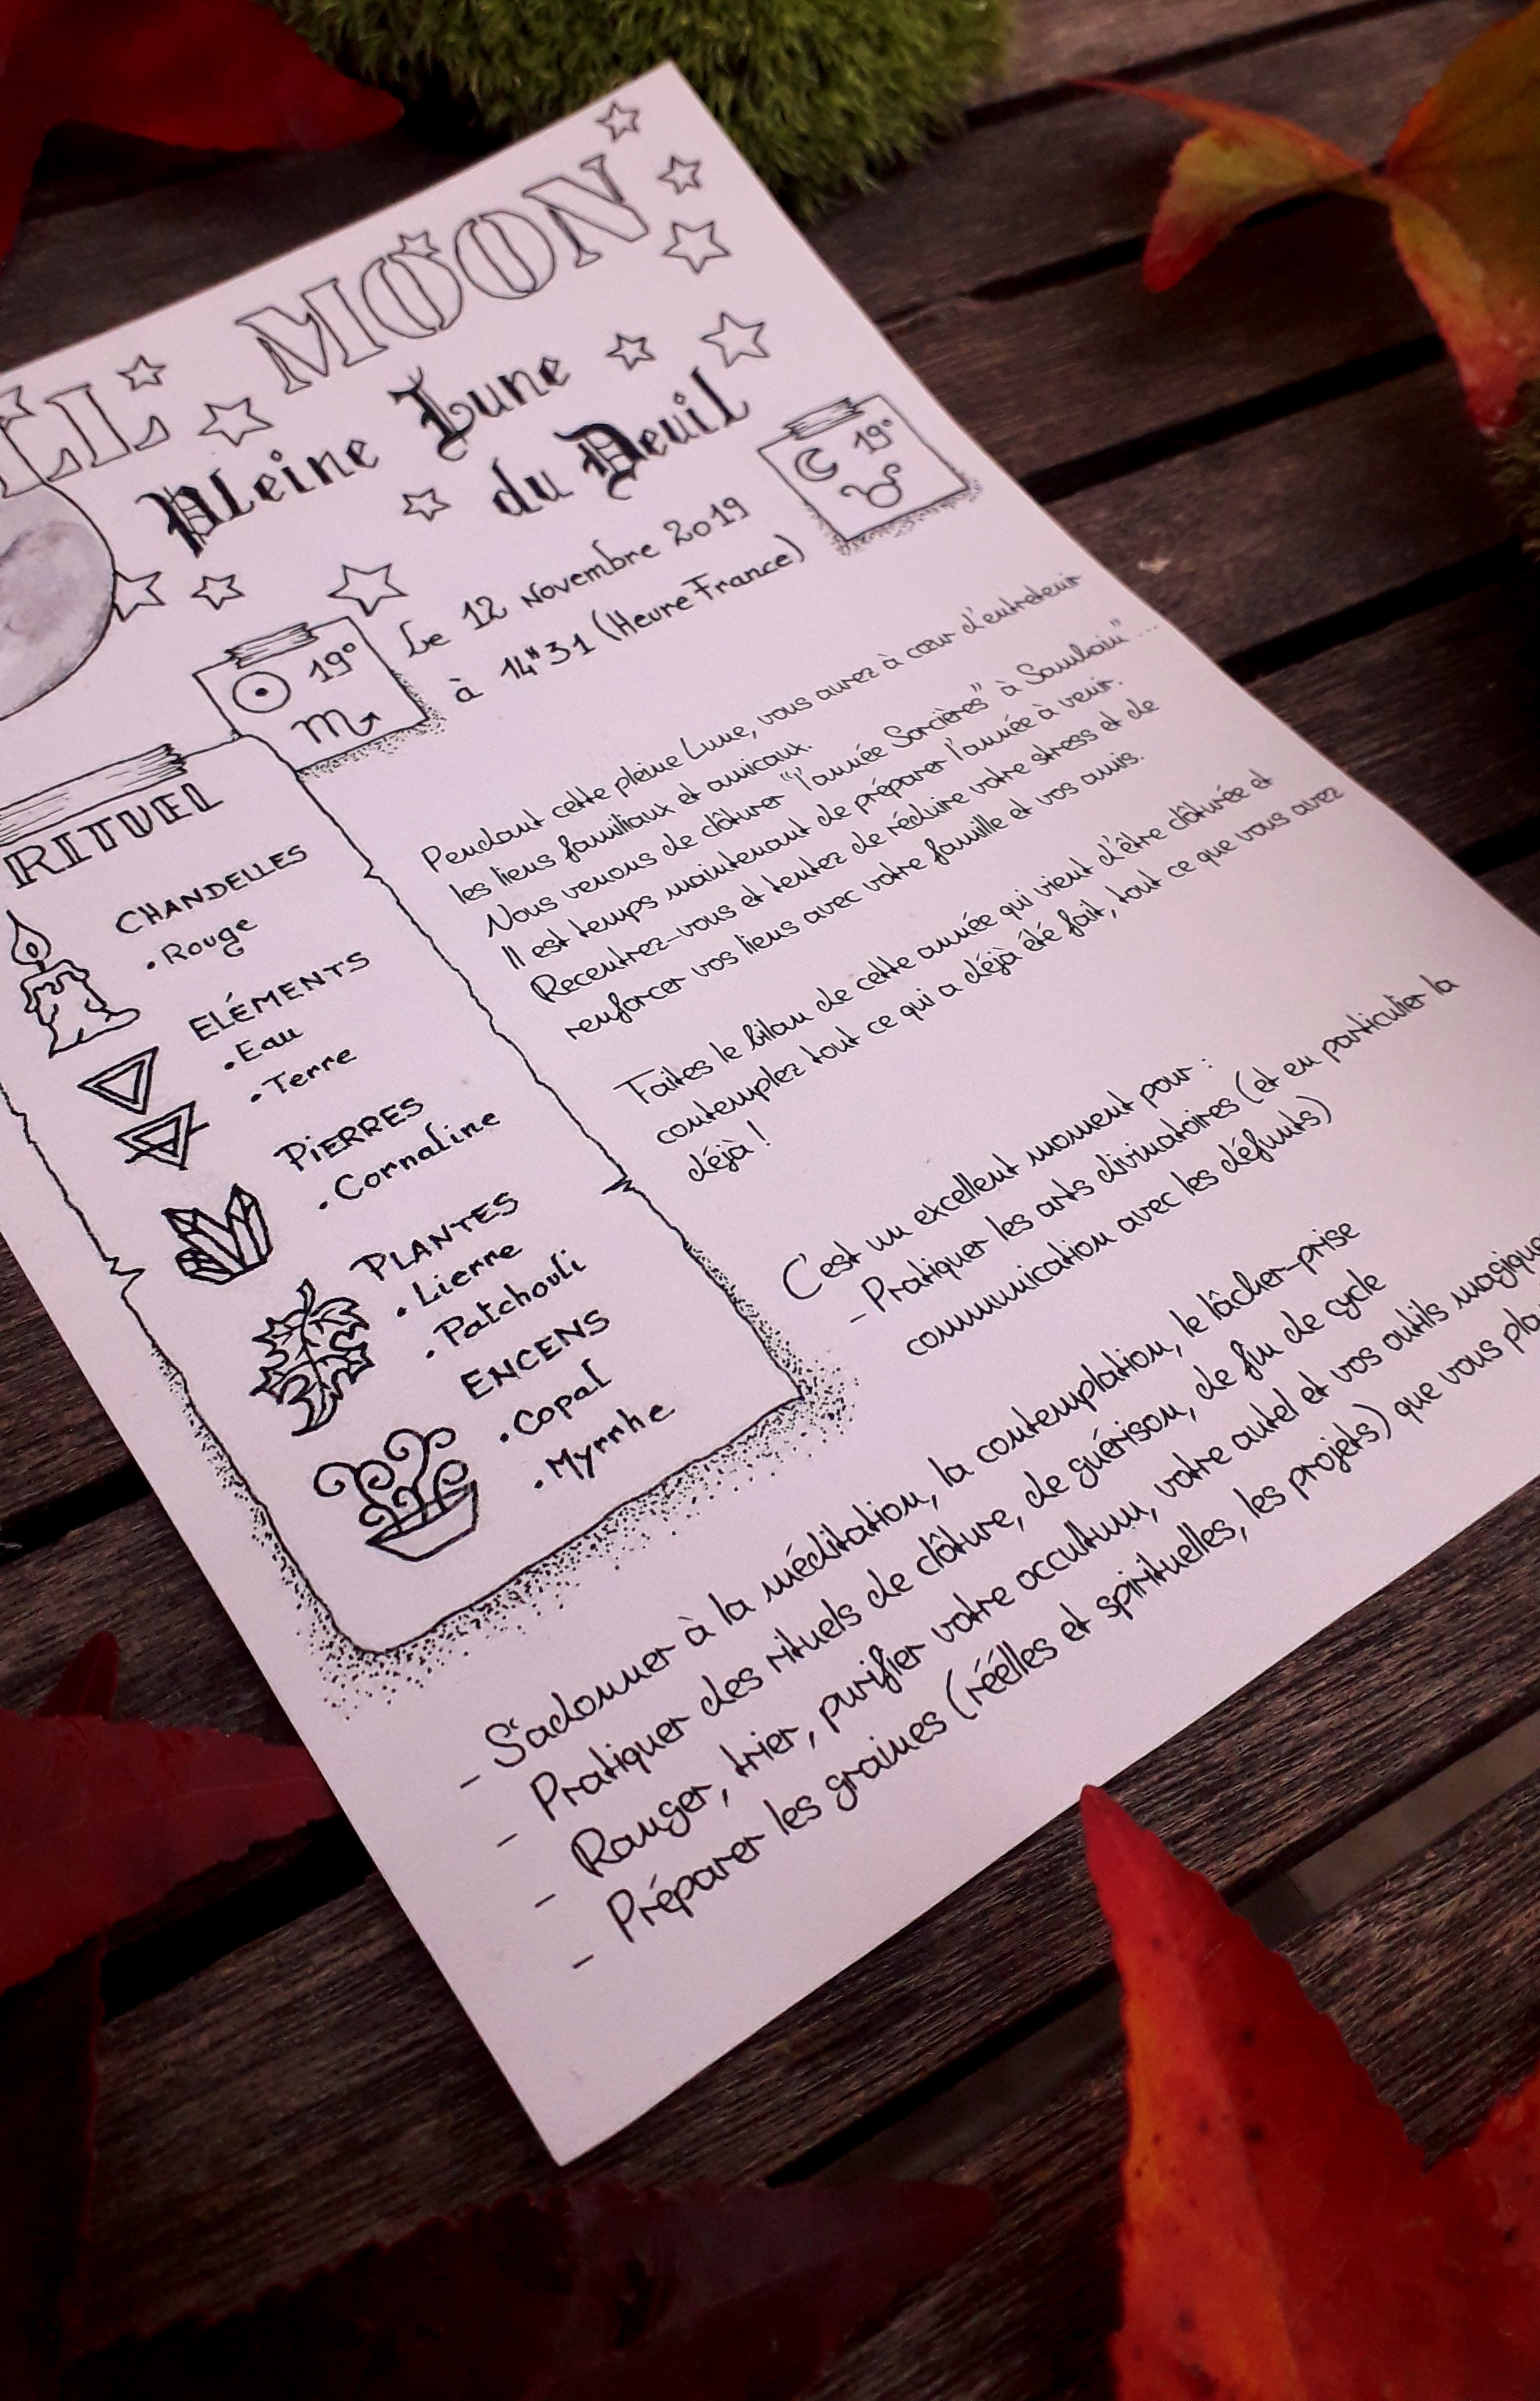 MOON
Pleine Lune
du Deuil
Le 12 Novembre 2019
à 14H31 (Heure France)
19°
19°
RITUEL
CHANDELLES
• Rouge
ELÉMENTS
• Eau
• Terre
PIERRES
• Cornaline
PLANTES
• Lierre
• Patchouli
ENCENS
• Copal
• Myrrhe
Pendant cette pleine Lune, vous aurez à cœur d'entretenir
les liens familiaux et amicaux.
Nous venons de clôturer "l'année Sorcières" à Samhain"...
Il est temps maintenant de préparer l'année à venir.
Recentrez-vous et tentez de réduire votre stress et de
renforcer vos liens avec votre famille et vos amis.
Faites le bilan de cette année qui vient d'être clôturée et
contemplez tout ce qui a déjà été fait, tout ce que vous avez
déjà !
C'est un excellent moment pour :
- Pratiquer les arts divinatoires (et en particulier la
communication avec les défunts)
- S'adonner à la méditation, la contemplation, le lâcher-prise
- Pratiquer des rituels de clôture, de guérison, de fin de cycle
- Ranger, trier, purifier votre occultum, votre autel et vos outils magique
- Préparer les graines (réélles et spirituelles, les projets) que vous